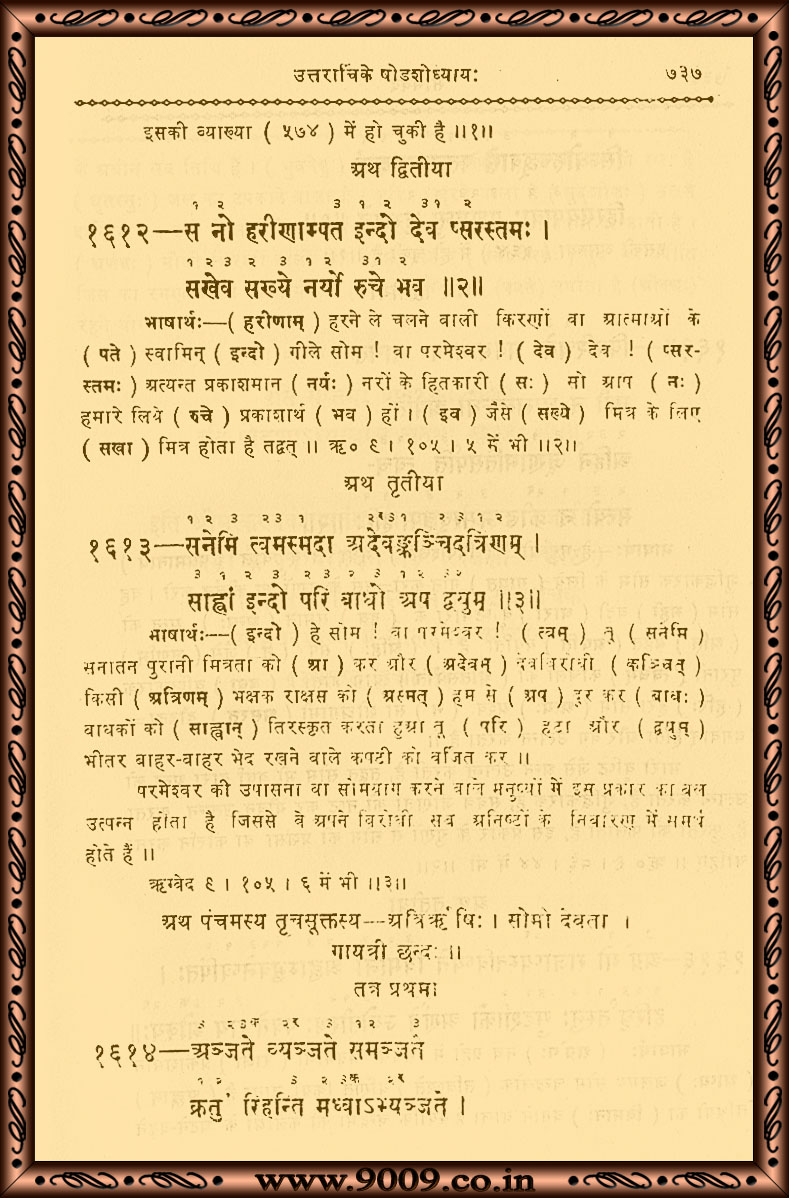 उत्तरार्चिके षोडशोध्यायः ७३७
इसकी व्याख्या ( ५७४ ) में हो चुकी है ॥१॥
अथ द्वितीया
१ २ ३ १ २ ३१ २
१६१२—स नो हरीणाम्पत इन्दो देव प्सरस्तमः ।
१ २ ३ २ ३ १ २ ३१ २
सखेव सख्ये नर्यो रुचे भव ॥२॥
भाषार्थः—( हरीणाम् ) हरने ले चलने वाली किरणों वा आत्माओं के
( पते ) स्वामिन् ( इन्दो ) गीले सोम ! वा परमेश्वर ! ( देव ) देव ! ( प्सर-
स्तमः ) अत्यन्त प्रकाशमान ( नर्यः ) नरों के हितकारी ( सः ) सो आप ( नः )
हमारे लिये ( रुचे ) प्रकाशार्थ ( भव ) हों । ( इव ) जैसे ( सख्ये ) मित्र के लिए
( सखा ) मित्र होता है तद्वत् ॥ ऋ० ९ । १०५ । ५ में भी ॥२॥
अथ तृतीया
१ २ ३ २३ १ २१३१ २ ३ १ २
१६१३—सनेमि त्वमस्मदा अदेवङ्कञ्चिदत्रिणम् ।
३ १ २ ३ २ ३ २ ३ १ २
साह्वाँ इन्दो परि बाधो अप द्वयुम् ॥३॥
भाषार्थः—( इन्दो ) हे सोम ! वा परमेश्वर ! ( त्वम् ) तू ( सनेमि )
सनातन पुरानी मित्रता को ( आ ) कर और ( अदेवम् ) देवविरोधी ( कञ्चित् )
किसी ( अत्रिणम् ) भक्षक राक्षस को ( अस्मत् ) हम से ( अप ) दूर कर ( बाधः )
बाधकों को ( साह्वान् ) तिरस्कृत करता हुआ तू ( परि ) हटा और ( द्वयुम् )
भीतर बाहर-बाहर भेद रखने वाले कपटी को वर्जित कर ॥
परमेश्वर की उपासना वा सोमयाग करने वाले मनुष्यों में इस प्रकार का बल
उत्पन्न होता है जिससे वे अपने विरोधी सब अनिष्टों के निवारण में समर्थ
होते हैं ॥
ऋग्वेद ९ । १०५ । ६ में भी ॥३॥
अथ पंचमस्य तृचसूक्तस्य—अत्रिर्ऋषिः । सोमो देवता ।
गायत्री छन्दः ॥
तत्र प्रथमा
३ २३क २र ३ १ २ ३
१६१४—अञ्जते व्यञ्जते समञ्जते
१ २ ३ २ ३क २र
क्रतुं रिहन्ति मध्वाऽभ्यञ्जते ।
www.9009.co.in